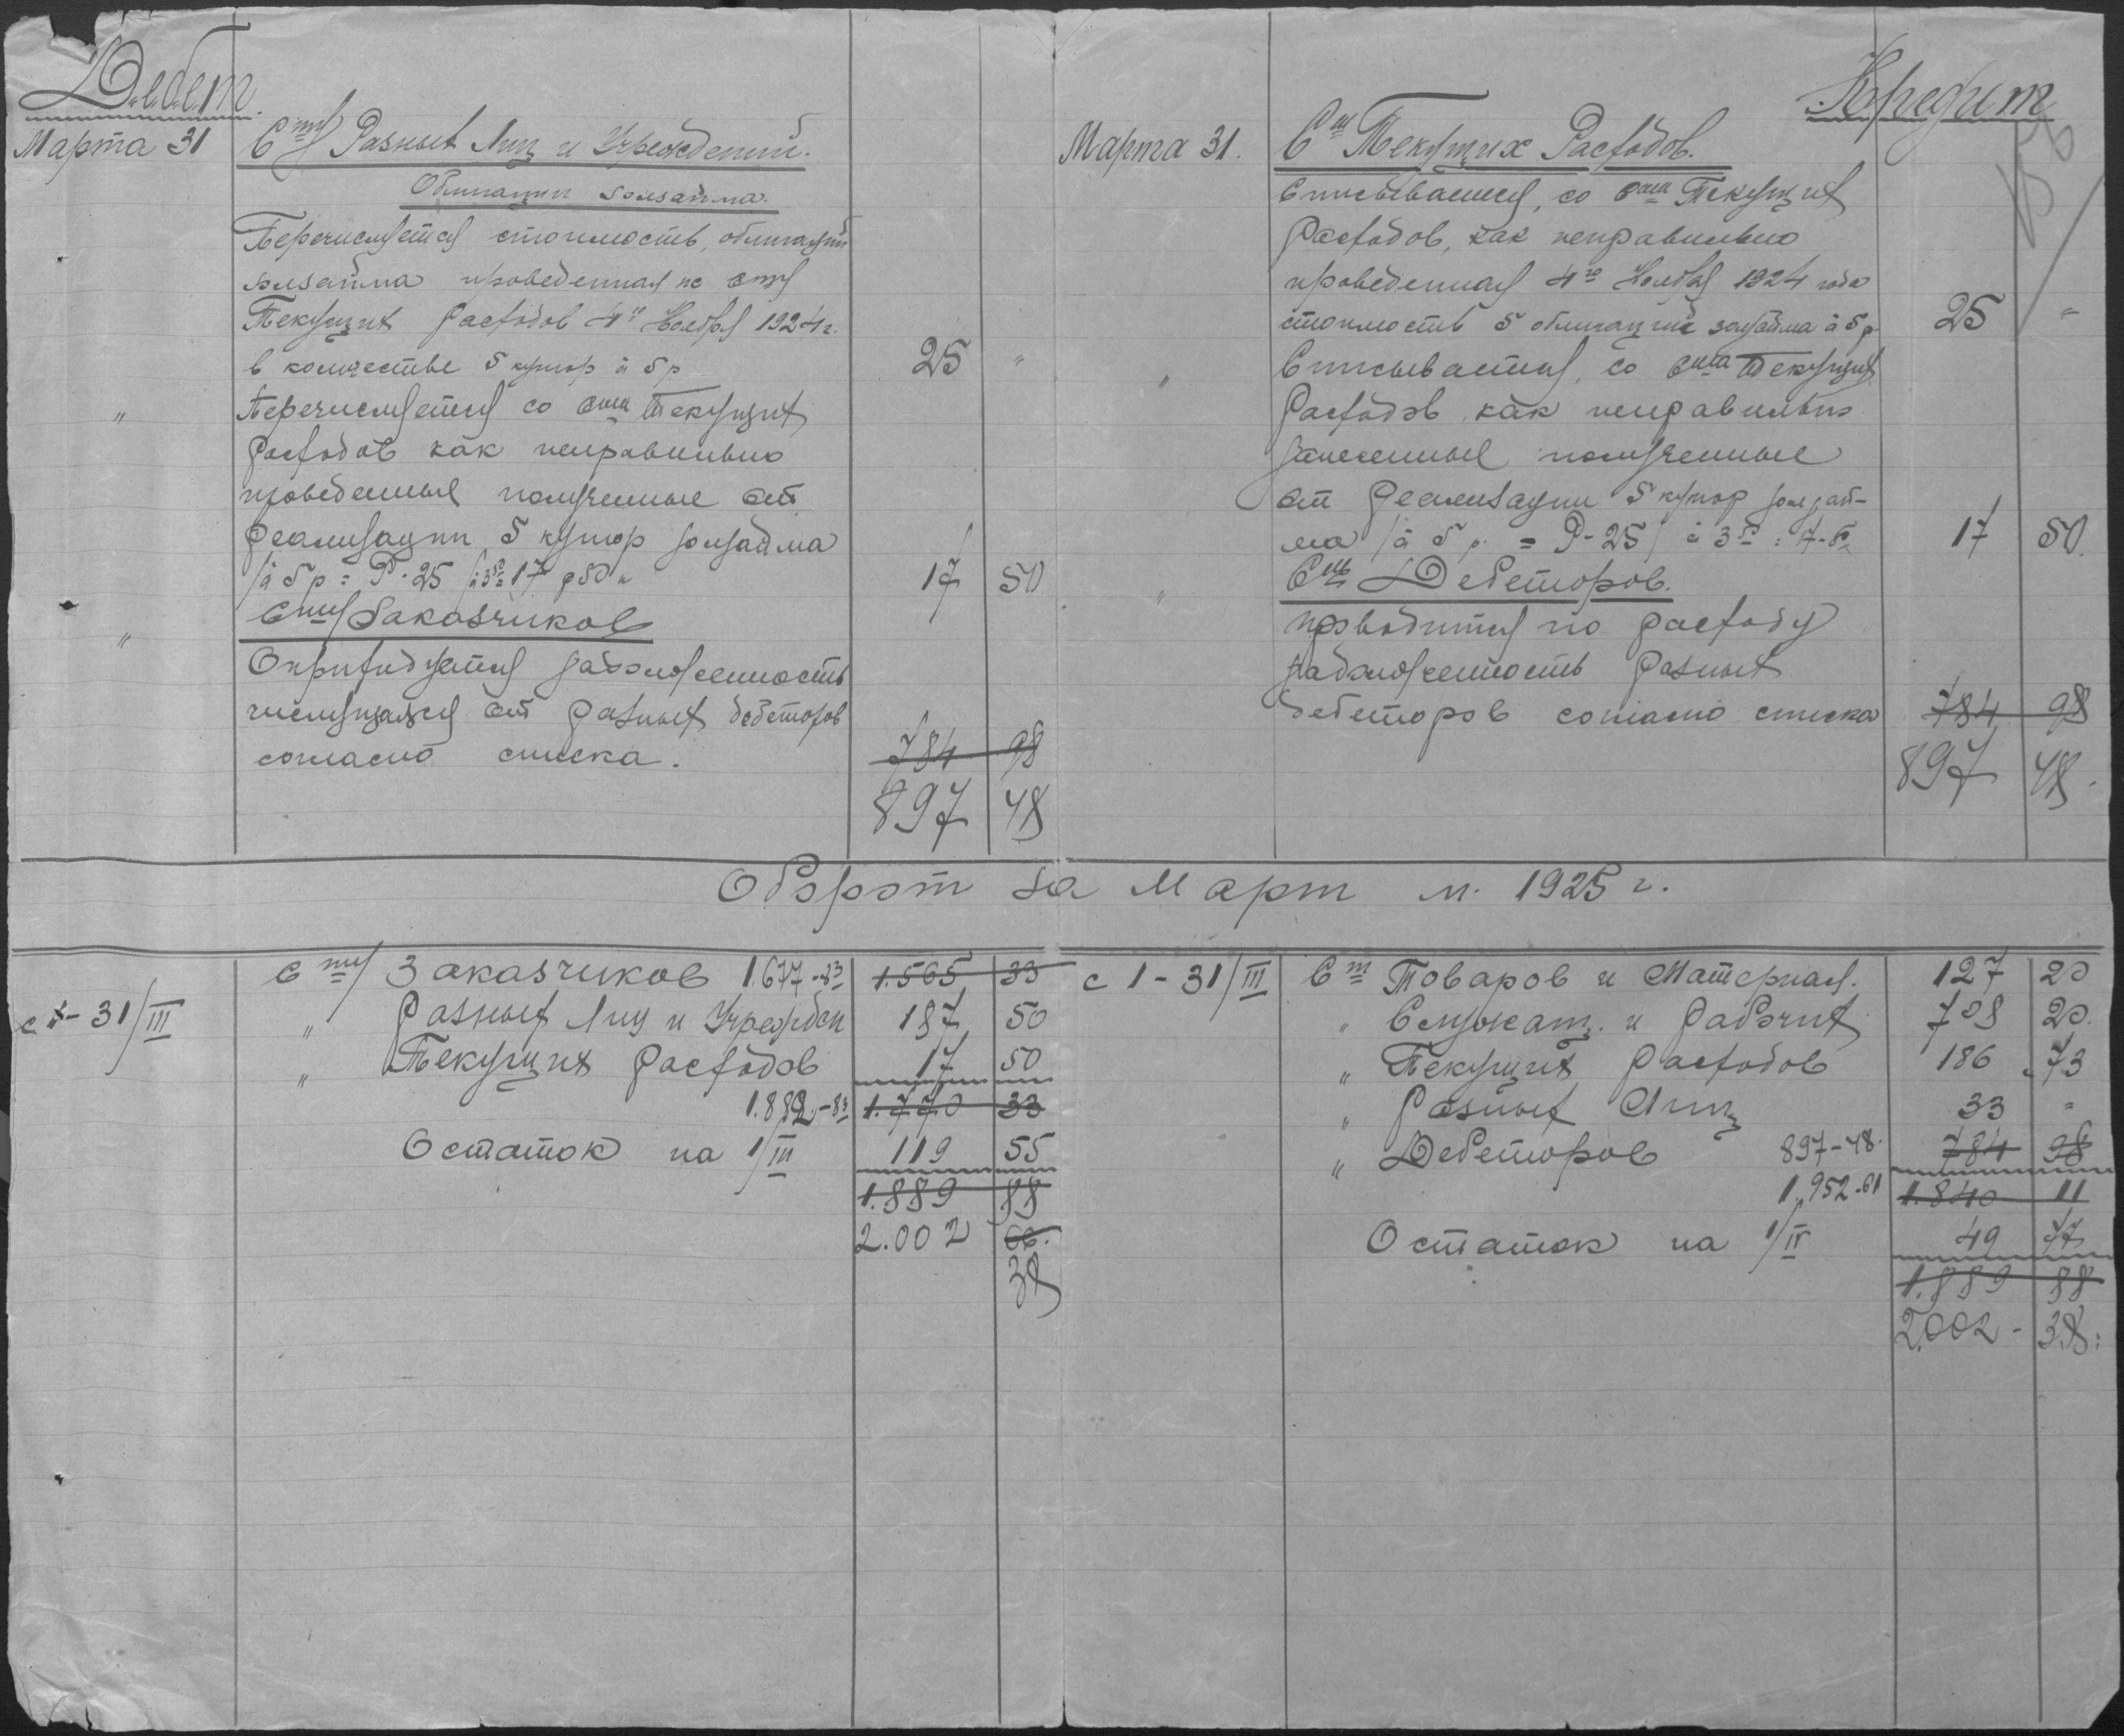 Дебет.
Марта 31
Сту Разных Лиц и Учреждений.
Облигации золзайма.
Перечисляется стоимость облигаций
золзайма проведенная по сту
Текущих Расходов 4го Ноября 1924 г.
в количестве 5 купюр à 5 р 25 "
" Перечисляется со ста Текущих
Расходов как неправильно
проведенные полученные от
реализации 5 купюр золзайма
/à 5 р = Р. 25 / à 3 50 = 17 р 50 к 17 50
" Сту Заказчиков
Оприходуется задолженность
числящаяся от разных дебеторов
согласно списка. 784 98
897 48
Кредит
Марта 31. Сч Текущих Расходов.
Списывается, со счета Текущих
Расходов, как неправильно
проведенная 4го Ноября 1924 года
стоимость 5 облигаций зол/займа à 5 р 25 "
" Списывается, со счета Текущих
Расходов как неправильно
занесенные полученные
от реализации 5 купюр зол/зай-
ма /à 5 р. = Р-25/ à 3 50 = 17-50 17 50.
" Сч Дебеторов.
Проводится по расходу
задолженность разных
дебеторов согласно списка 784 98
897 48.
Оборот за Март м. 1925 г.
с 1 - 31/III Сту Заказчиков 1.677-83 1.565 33
" Разных Лиц и Учрежден 187 50
" Текущих Расходов 17 50
1.882-83 1.770 33
Остаток на 1/III 119 55
1.889 88
2.002
38
с 1 - 31/III Ст Товаров и Материал. 127 20
" Служащ. и Рабочих 708 20.
" Текущих Расходов 186 73
" Разных Лиц 33 "
" Дебеторов 897-48. 784 98
1.952-61 1.840 11
Остаток на 1/IV 49 77
1.889 88
2.002 - 38.